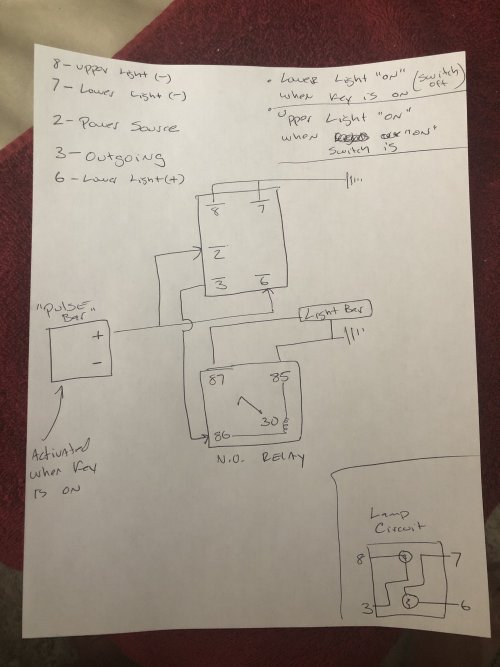 8 - Upper Light (-)
7 - Lower Light (-)
2 - Power Source
3 - Outgoing
6 - Lower Light (+)
• Lower Light "ON" (Switch off)
when Key is on
• Upper Light "ON"
when "ON"
Switch is
8 7
2
3 6
"Pulse
Bar"
+
-
Activated
when Key
is on
Light Bar
87 85
30
86
N.O. RELAY
Lamp
Circuit
8 7
3 6